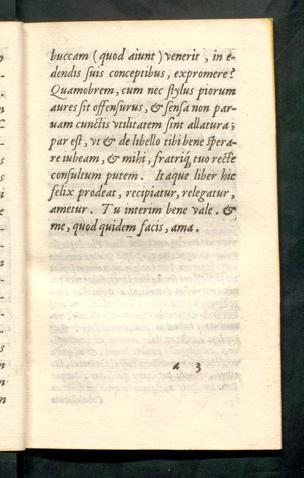 buccam (quod aiunt) venerit, in e-
dendis suis conceptibus, expromere?
Quamobrem, cum nec stylus piorum
aures sit offensurus, & sensa non par-
uam cunctis vtilitatem sint allatura;
par est, vt & de libello tibi bene spera-
re iubeam, & mihi, fratriq́; tuo recte
consultum putem. Itaque liber hic
felix prodeat, recipiatur, relegatur,
ametur. Tu interim bene vale. &
me, quod quidem facis, ama.
a 3